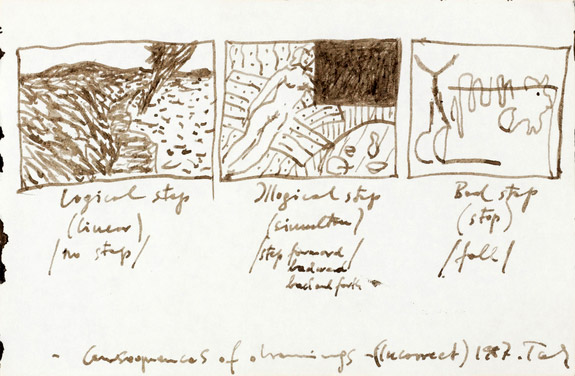 Logical step
(linear)
/no step/
Illogical step
(simultan)
/step forward
backward
back and forth
Bad step
(stop)
/fall/
- Consequences of drawings - (Incorrect) 1987.